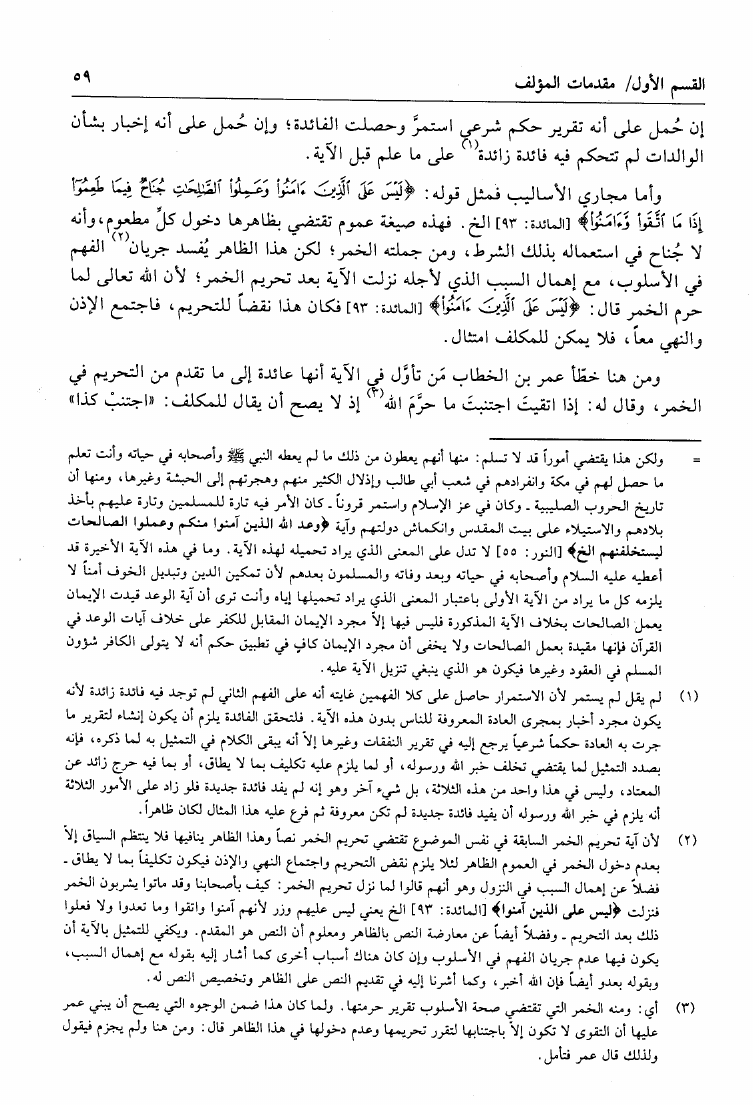 القسم الأول/ مقدمات المؤلف
٥٩
إن حُمل على أنه تقرير حكم شرعي استمرَّ وحصلت الفائدة؛ وإن حُمل على أنه إخبار بشأن
الوالدات لم تتحكم فيه فائدة زائدة(١) على ما علم قبل الآية.
وأما مجاري الأساليب فمثل قوله: ﴿لَيْسَ عَلَى ٱلَّذِينَ ءَامَنُوا۟ وَعَمِلُوا۟ ٱلصَّٰلِحَٰتِ جُنَاحٌ فِيمَا طَعِمُوٓا۟
إِذَا مَا ٱتَّقَوا۟ وَّءَامَنُوا۟﴾ [المائدة: ٩٣] الخ. فهذه صيغة عموم تقتضي بظاهرها دخول كلِّ مطعوم، وأنه
لا جُناح في استعماله بذلك الشرط، ومن جملته الخمر؛ لكن هذا الظاهر يُفسد جريان(٢) الفهم
في الأسلوب، مع إهمال السبب الذي لأجله نزلت الآية بعد تحريم الخمر؛ لأن الله تعالى لما
حرم الخمر قال: ﴿لَيْسَ عَلَى ٱلَّذِينَ ءَامَنُوا۟﴾ [المائدة: ٩٣] فكان هذا نقضاً للتحريم، فاجتمع الإذن
والنهي معاً، فلا يمكن للمكلف امتثال.
ومن هنا خطّأ عمر بن الخطاب مَن تأوَّل في الآية أنها عائدة إلى ما تقدم من التحريم في
الخمر، وقال له: إذا اتقيتَ اجتنبتَ ما حرَّمَ الله(٣) إذ لا يصح أن يقال للمكلف: «اجتنبْ كذا»
= ولكن هذا يقتضي أموراً قد لا تسلم: منها أنهم يعطون من ذلك ما لم يعطه النبي ﷺ وأصحابه في حياته وأنت تعلم
ما حصل لهم في مكة وانفرادهم في شعب أبي طالب وإذلال الكثير منهم وهجرتهم إلى الحبشة وغيرها، ومنها أن
تاريخ الحروب الصليبية ـ وكان في عز الإسلام واستمر قروناً ـ كان الأمر فيه تارة للمسلمين وتارة عليهم بأخذ
بلادهم والاستيلاء على بيت المقدس وانكماش دولتهم وآية ﴿وعد الله الذين آمنوا منكم وعملوا الصالحات
ليستخلفنهم الخ﴾ [النور: ٥٥] لا تدل على المعنى الذي يراد تحميله لهذه الآية. وما في هذه الآية الأخيرة قد
أعطيه عليه السلام وأصحابه في حياته وبعد وفاته والمسلمون بعدهم لأن تمكين الدين وتبديل الخوف أمناً لا
يلزمه كل ما يراد من الآية الأولى باعتبار المعنى الذي يراد تحميلها إياه وأنت ترى أن آية الوعد قيدت الإيمان
بعمل الصالحات بخلاف الآية المذكورة فليس فيها إلاّ مجرد الإيمان المقابل للكفر على خلاف آيات الوعد في
القرآن فإنها مقيدة بعمل الصالحات ولا يخفى أن مجرد الإيمان كافٍ في تطبيق حكم أنه لا يتولى الكافر شؤون
المسلم في العقود وغيرها فيكون هو الذي ينبغي تنزيل الآية عليه.
(١) لم يقل لم يستمر لأن الاستمرار حاصل على كلا الفهمين غايته أنه على الفهم الثاني لم توجد فيه فائدة زائدة لأنه
يكون مجرد أخبار بمجرى العادة المعروفة للناس بدون هذه الآية. فلتحقق الفائدة يلزم أن يكون إنشاء لتقرير ما
جرت به العادة حكماً شرعياً يرجع إليه في تقرير النفقات وغيرها إلاّ أنه يبقى الكلام في التمثيل به لما ذكره، فإنه
بصدد التمثيل لما يقتضي تخلف خبر الله ورسوله، أو لما يلزم عليه تكليف بما لا يطاق، أو بما فيه حرج زائد عن
المعتاد، وليس في هذا واحد من هذه الثلاثة، بل شيء آخر وهو إنه لم يفد فائدة جديدة فلو زاد على الأمور الثلاثة
أنه يلزم في خبر الله ورسوله أن يفيد فائدة جديدة لم تكن معروفة ثم فرع عليه هذا المثال لكان ظاهراً.
(٢) لأن آية تحريم الخمر السابقة في نفس الموضوع تقتضي تحريم الخمر نصاً وهذا الظاهر ينافيها فلا ينتظم السياق إلاّ
بعدم دخول الخمر في العموم الظاهر لئلا يلزم نقض التحريم واجتماع النهي والإذن فيكون تكليفاً بما لا يطاق ـ
فضلاً عن إهمال السبب في النزول وهو أنهم قالوا لما نزل تحريم الخمر: كيف بأصحابنا وقد ماتوا يشربون الخمر
فنزلت ﴿ليس على الذين آمنوا﴾ [المائدة: ٩٣] الخ يعني ليس عليهم وزر لأنهم آمنوا واتقوا وما تعدوا ولا فعلوا
ذلك بعد التحريم ـ وفضلاً أيضاً عن معارضة النص بالظاهر ومعلوم أن النص هو المقدم. ويكفي للتمثيل بالآية أن
يكون فيها عدم جريان الفهم في الأسلوب وإن كان هناك أسباب أخرى كما أشار إليه بقوله مع إهمال السبب،
وبقوله بعدو أيضاً فإن الله أخبر، وكما أشرنا إليه في تقديم النص على الظاهر وتخصيص النص له.
(٣) أي: ومنه الخمر التي تقتضي صحة الأسلوب تقرير حرمتها. ولما كان هذا ضمن الوجوه التي يصح أن يبني عمر
عليها أن التقوى لا تكون إلاّ باجتنابها لتقرر تحريمها وعدم دخولها في هذا الظاهر قال: ومن هنا ولم يجزم فيقول
ولذلك قال عمر فتأمل.